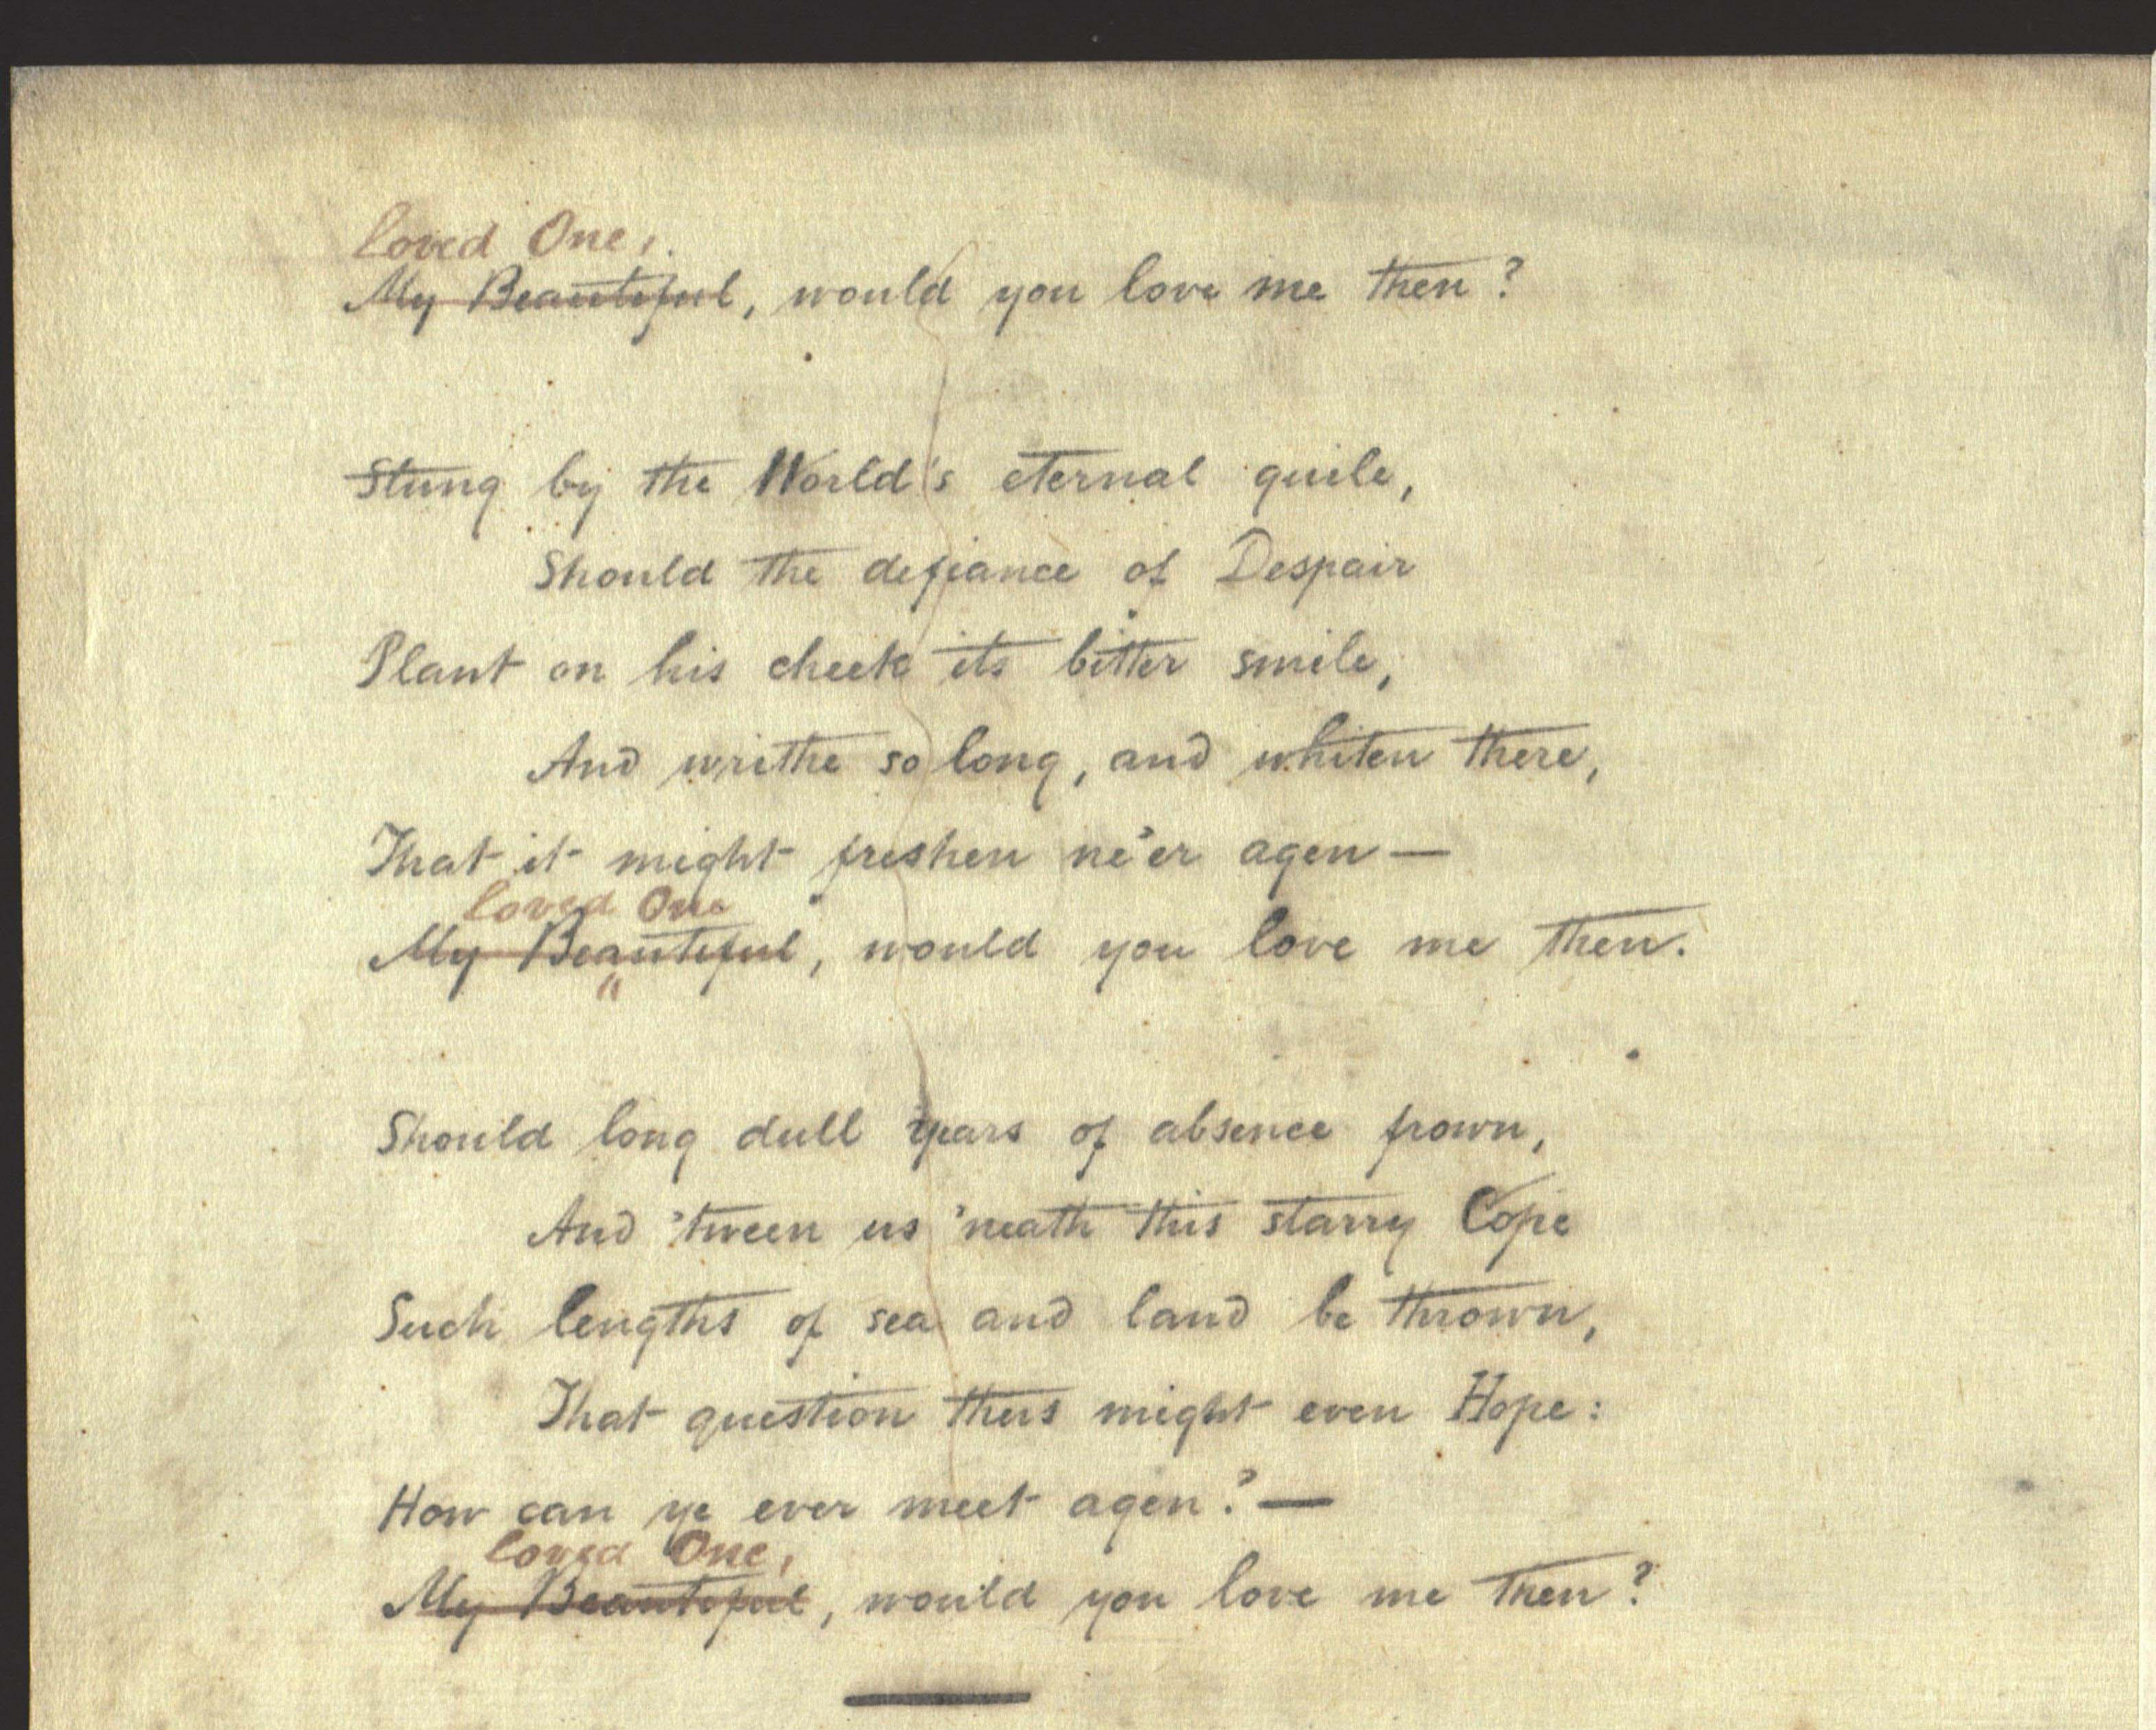 Loved One,
My Beautiful, would you love me then?
Stung by the World's eternal guile,
Should the defiance of Despair
Plant on his cheek its bitter smile,
And writhe so long, and whiten there,
That it might freshen ne'er agen—
Loved One
My Beautiful, would you love me then.
Should long dull years of absence frown,
And 'tween us 'neath this starry Cope
Such lengths of sea and land be thrown,
That question thus might even Hope:
How can ye ever meet agen?—
Loved One,
My Beautiful, would you love me then?